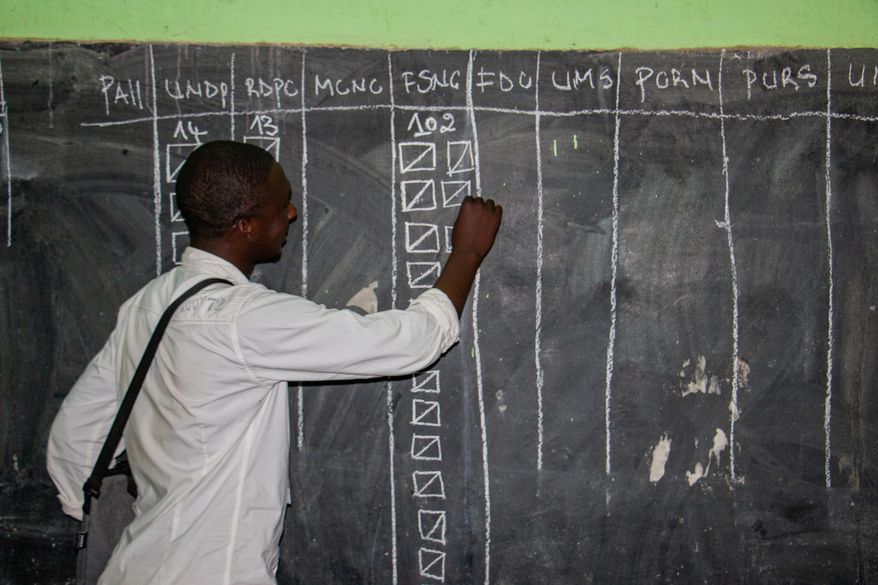 PAII UNDP RDPC MCNC FSNC FDC UMS PCRM PURS UM
14 13 102